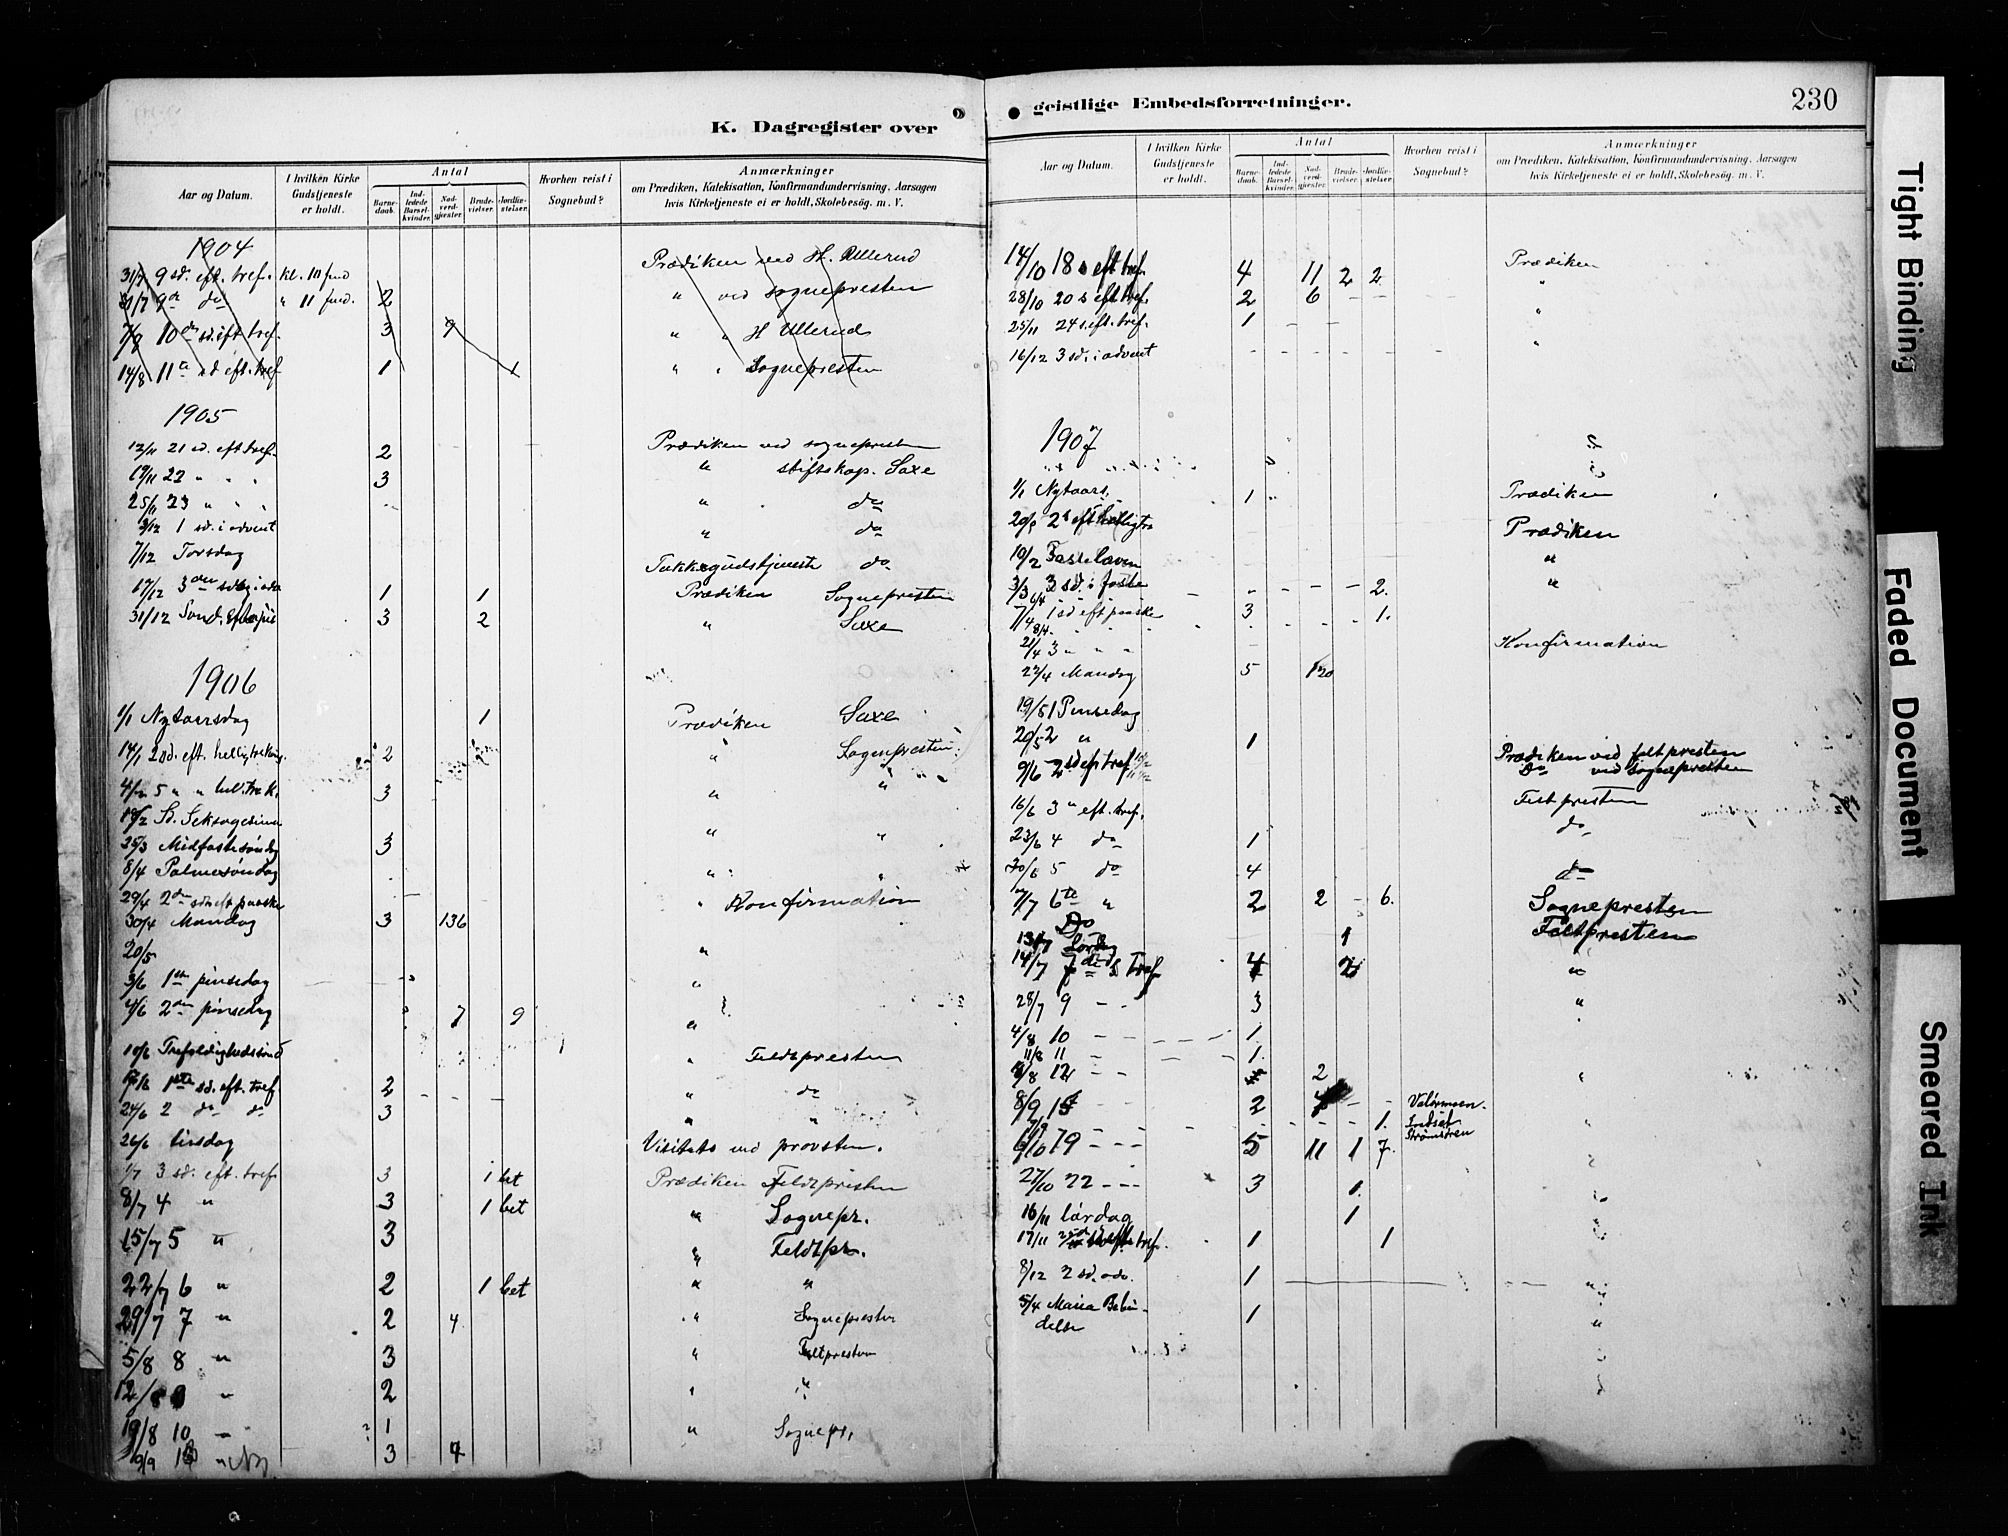 K. Dagregister over
Aar og Datum. I hvilken Kirke Gudstjeneste er holdt. Antal Barnedaab. Indledede Barselkvinder. Nadverdgjester. Brudevielser. Jordfæstelser. Hvorhen reist i Sognebud? Anmærkninger om Prædiken, Katekisation, Konfirmandundervisning, Aarsagen hvis Kirketjeneste ei er holdt, Skolebesøg. m. V.
1904
31/7 9 sd. eft. tref. kl. 10 fmd Prædiken ved H. Ullerud
31/7 9de do " 11 fmd. 2 " ved sognepresten
7/8 10de sd. eft tref. 3 9 " " H Ullerud
14/8 11te sd eft. tref 1 1 " " Sognepresten
1905
12/11 21 sd. eft tref. 2 Prædiken ved sognepresten
19/11 22 " " " 3 " stiftskap. Saxe
25/11 23 " " " " do
3/12 1 sd. i advent " do
7/12 Torsdag Takkegudstjeneste do
17/12 3die 1 1 Prædiken Sognepresten
31/12 Sønd. Efter jul 3 2 " Saxe
1906
1/1 Nytaarsdag 1 Prædiken Saxe
14/1 2 sd. eft. helligtrekong. 2 " Sognepresten
4/2 5 " " hel. trek. 3 " "
18/2 Sd. Seksagesima " "
25/3 Midfastesøndag 3
8/4 Palmesøndag " "
29/4 2den sd. eft paaske " Konfirmation
30/4 Mandag 3 136
20/5 "
3/6 1ste pinsedag "
4/6 2den pinsedag 7 9 "
10/6 Trefoldighedssønd " Feldtpresten
17/6 1ste sd. eft. tref 2 " do
24/6 2 do do 3 " "
26/6 tirsdag Visitats ved provsten.
1/7 3 sd. eft. tref. 3 1 bet Prædiken Feldtpresten
8/7 4 " 3 1 bet " Sognepr.
15/7 5 " 3 " Feldtpr.
22/7 6 " 2 1 bet " "
29/7 7 " 2 4 " Sognepresten
5/8 8 " 3 " Feltpresten
12/8 9 " 2 " "
19/8 10 " 1 " Sognepr.
3 4
geistlige Embedsforretninger.
230
Aar og Datum. I hvilken Kirke Gudstjeneste er holdt. Antal Barnedaab. Indledede Barselkvinder. Nadverdgjester. Brudevielser. Jordfæstelser. Hvorhen reist i Sognebud? Anmærkninger om Prædiken, Katekisation, Konfirmandundervisning, Aarsagen hvis Kirketjeneste ei er holdt, Skolebesøg. m. V.
14/10 18 s eft tref. 4 11 2 2 Prædiken
28/10 20 s eft tref. 2 6 - - "
25/11 24 s. eft. tref. 1 - - "
16/12 3 sd. i advent - - - - "
1907
1/1 Nytaars. 1 Prædiken
Prædiken
10/2 Fastelaven "
3/3 3 sd. i faste - - - - 2. "
7/4 1 sd eft paaske 3 1.
8/4.
21/4 3 " " " Konfirmation
22/4 Mandag 5 120
19/5 1 Pinsedag
20/5 2 " 1
9/6 2 sd eft tref Prædiken ved feltpresten
Do ved sognepresten
16/6 3 " eft. tref. Feltpresten
23/6 4 do 1 do
30/6 5 do 4 do
7/7 6te " 2 2 - 6. Sognepresten
Do Feltpresten
13/7 Lørdag 1
14/7 7de s Tref 4 2 "
28/7 9 - - 3 "
4/8 10 - - 1.
11/8 11 - 1.
12 - - 2
8/9 15 - - 2 - - Valørmoen.
1.
6/10 19 - - - 5 11 1 7. Strømsøren
27/10 22 - - - 3 1.
16/11 lørdag 1
17/11 tref. 1 1
8/12 2 sd. adv. 1 "
5/4 Maria Bebudelse 1 "
Tight Binding
Faded Document
Smeared Ink